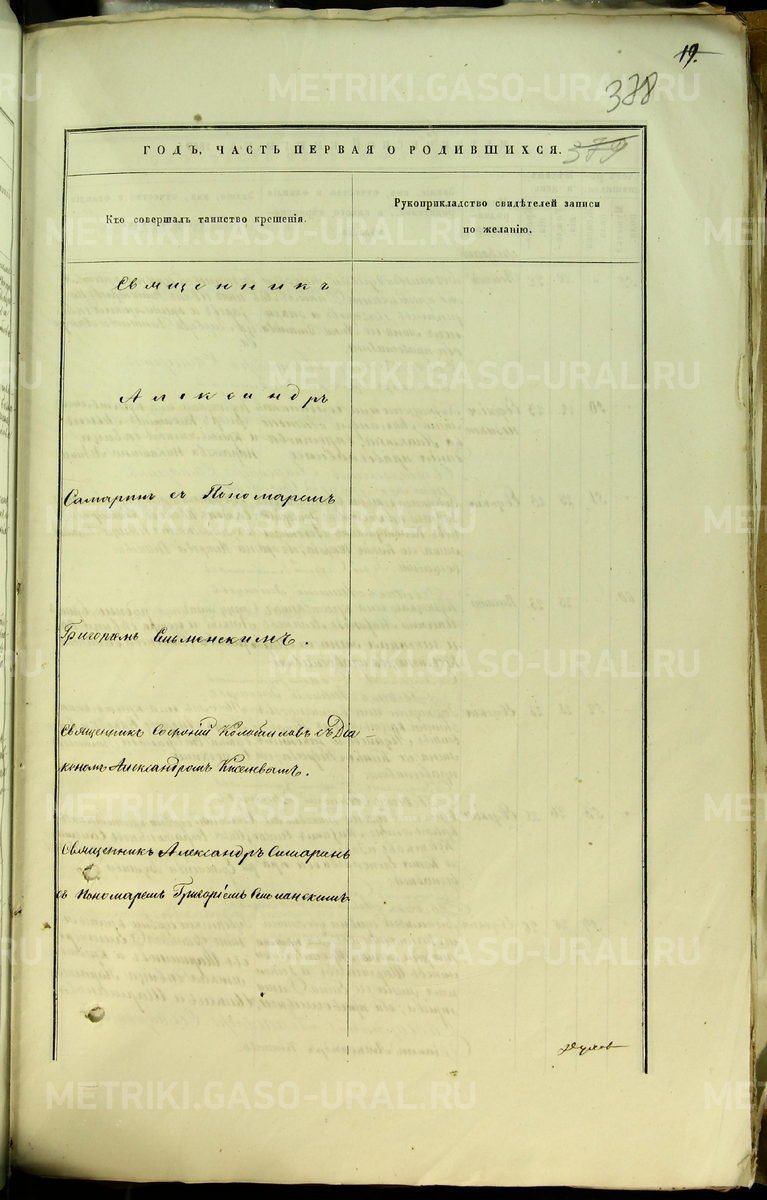 19.
378
379
ГОДЪ, ЧАСТЬ ПЕРВАЯ О РОДИВШИХСЯ.
Кто совершалъ таинство крещенія.
Рукоприкладство свидѣтелей записи
по желанію.
Священникъ
Александръ
Самаринъ съ Пономаремъ
Священникъ Софроній съ Діа-
кономъ Александромъ Киселевымъ.
Священникъ Александръ Самаринъ
съ Пономаремъ Григоріемъ
METRIKI.GASO-URAL.RU